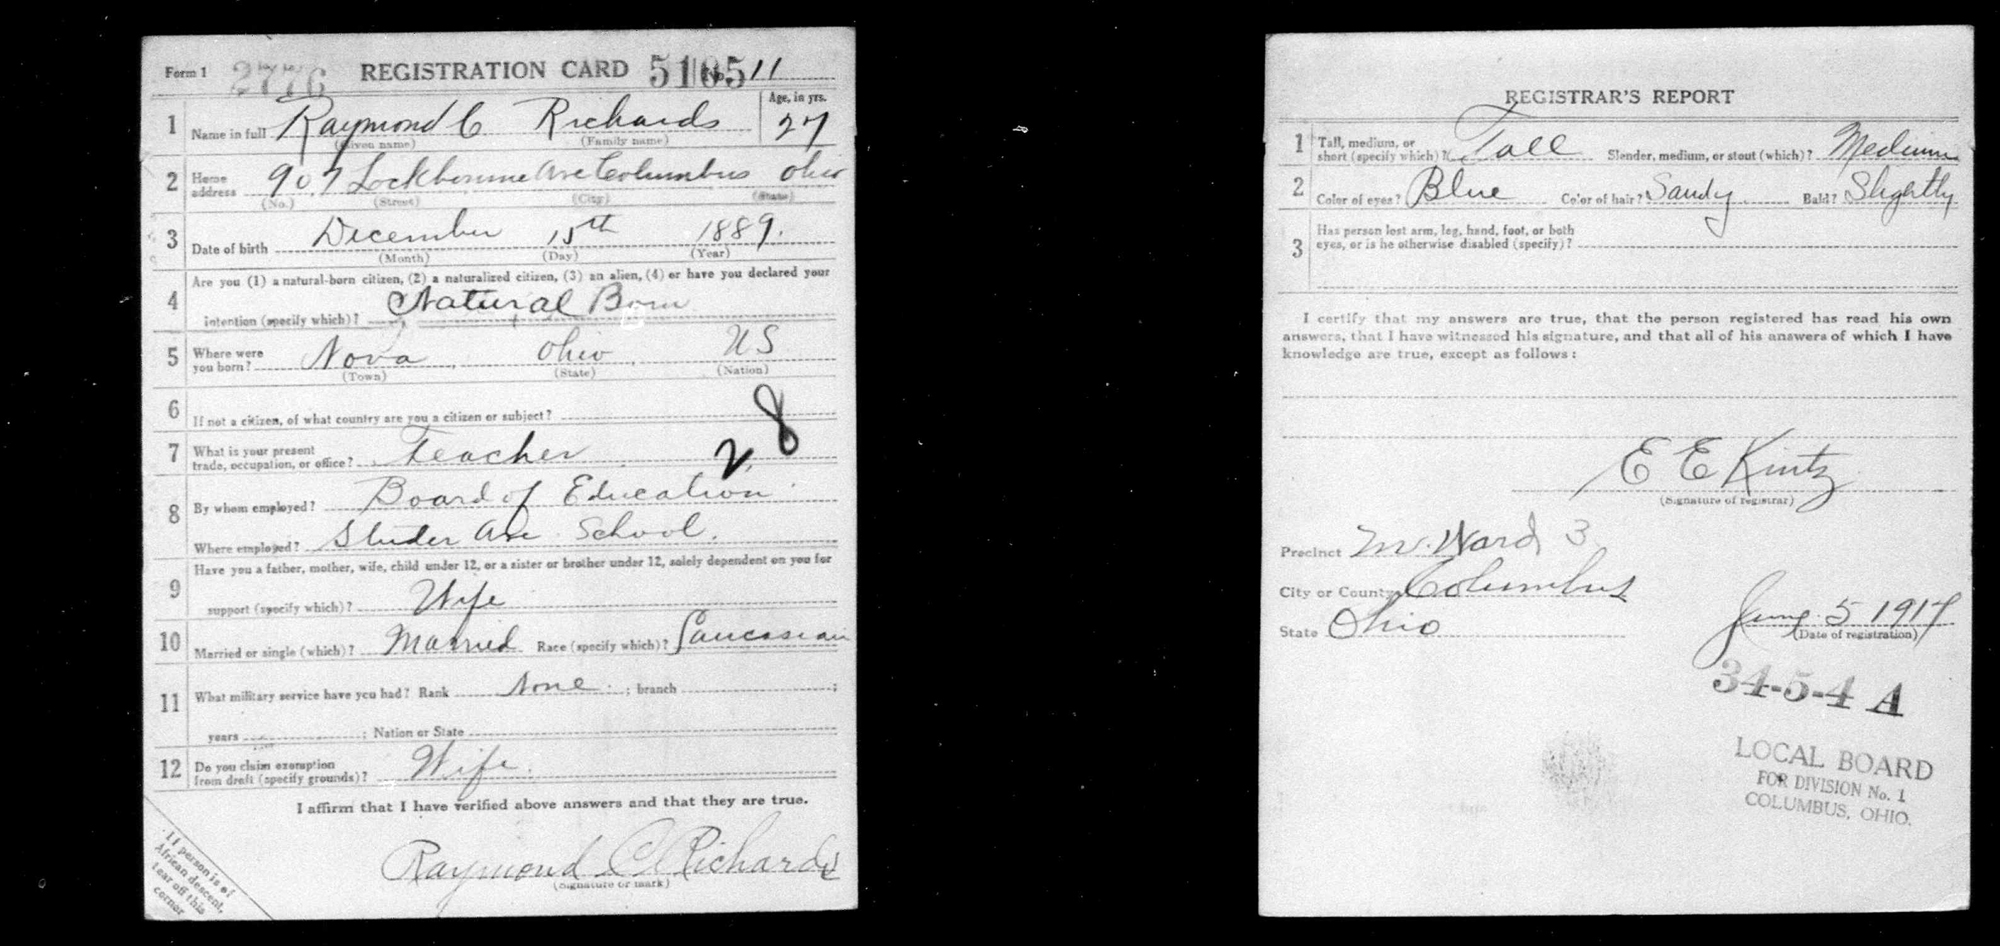 Form 1 2776 REGISTRATION CARD 5105 No. 11
1 Name in full Raymond C Richards Age, in yrs. 27
(Given name) (Family name)
2 Home address 907 Lockbourne Ave Columbus Ohio
(No.) (Street) (City) (State)
3 Date of birth December 15th 1889.
(Month) (Day) (Year)
4 Are you (1) a natural-born citizen, (2) a naturalized citizen, (3) an alien, (4) or have you declared your
intention (specify which)? Natural Born
5 Where were you born? Nova, Ohio, US
(Town) (State) (Nation)
6 If not a citizen, of what country are you a citizen or subject?
7 What is your present trade, occupation, or office? Teacher 2 8
8 By whom employed? Board of Education
Where employed? Studer Ave School.
9 Have you a father, mother, wife, child under 12, or a sister or brother under 12, solely dependent on you for
support (specify which)? Wife
10 Married or single (which)? Married Race (specify which)? Caucasian
11 What military service have you had? Rank None ; branch ;
years ; Nation or State
12 Do you claim exemption from draft (specify grounds)? Wife.
I affirm that I have verified above answers and that they are true.
Raymond C Richards
(Signature or mark)
If person is of
African descent,
tear off this
corner
REGISTRAR'S REPORT
1 Tall, medium, or short (specify which)? Tall Slender, medium, or stout (which)? Medium
2 Color of eyes? Blue Color of hair? Sandy Bald? Slightly
3 Has person lost arm, leg, hand, foot, or both
eyes, or is he otherwise disabled (specify)?
I certify that my answers are true, that the person registered has read his own
answers, that I have witnessed his signature, and that all of his answers of which I have
knowledge are true, except as follows:
E E Kintz
(Signature of registrar)
Precinct M. Ward 3
City or County Columbus
State Ohio
June 5 1917
(Date of registration)
34-5-4 A
LOCAL BOARD
FOR DIVISION No. 1
COLUMBUS, OHIO.